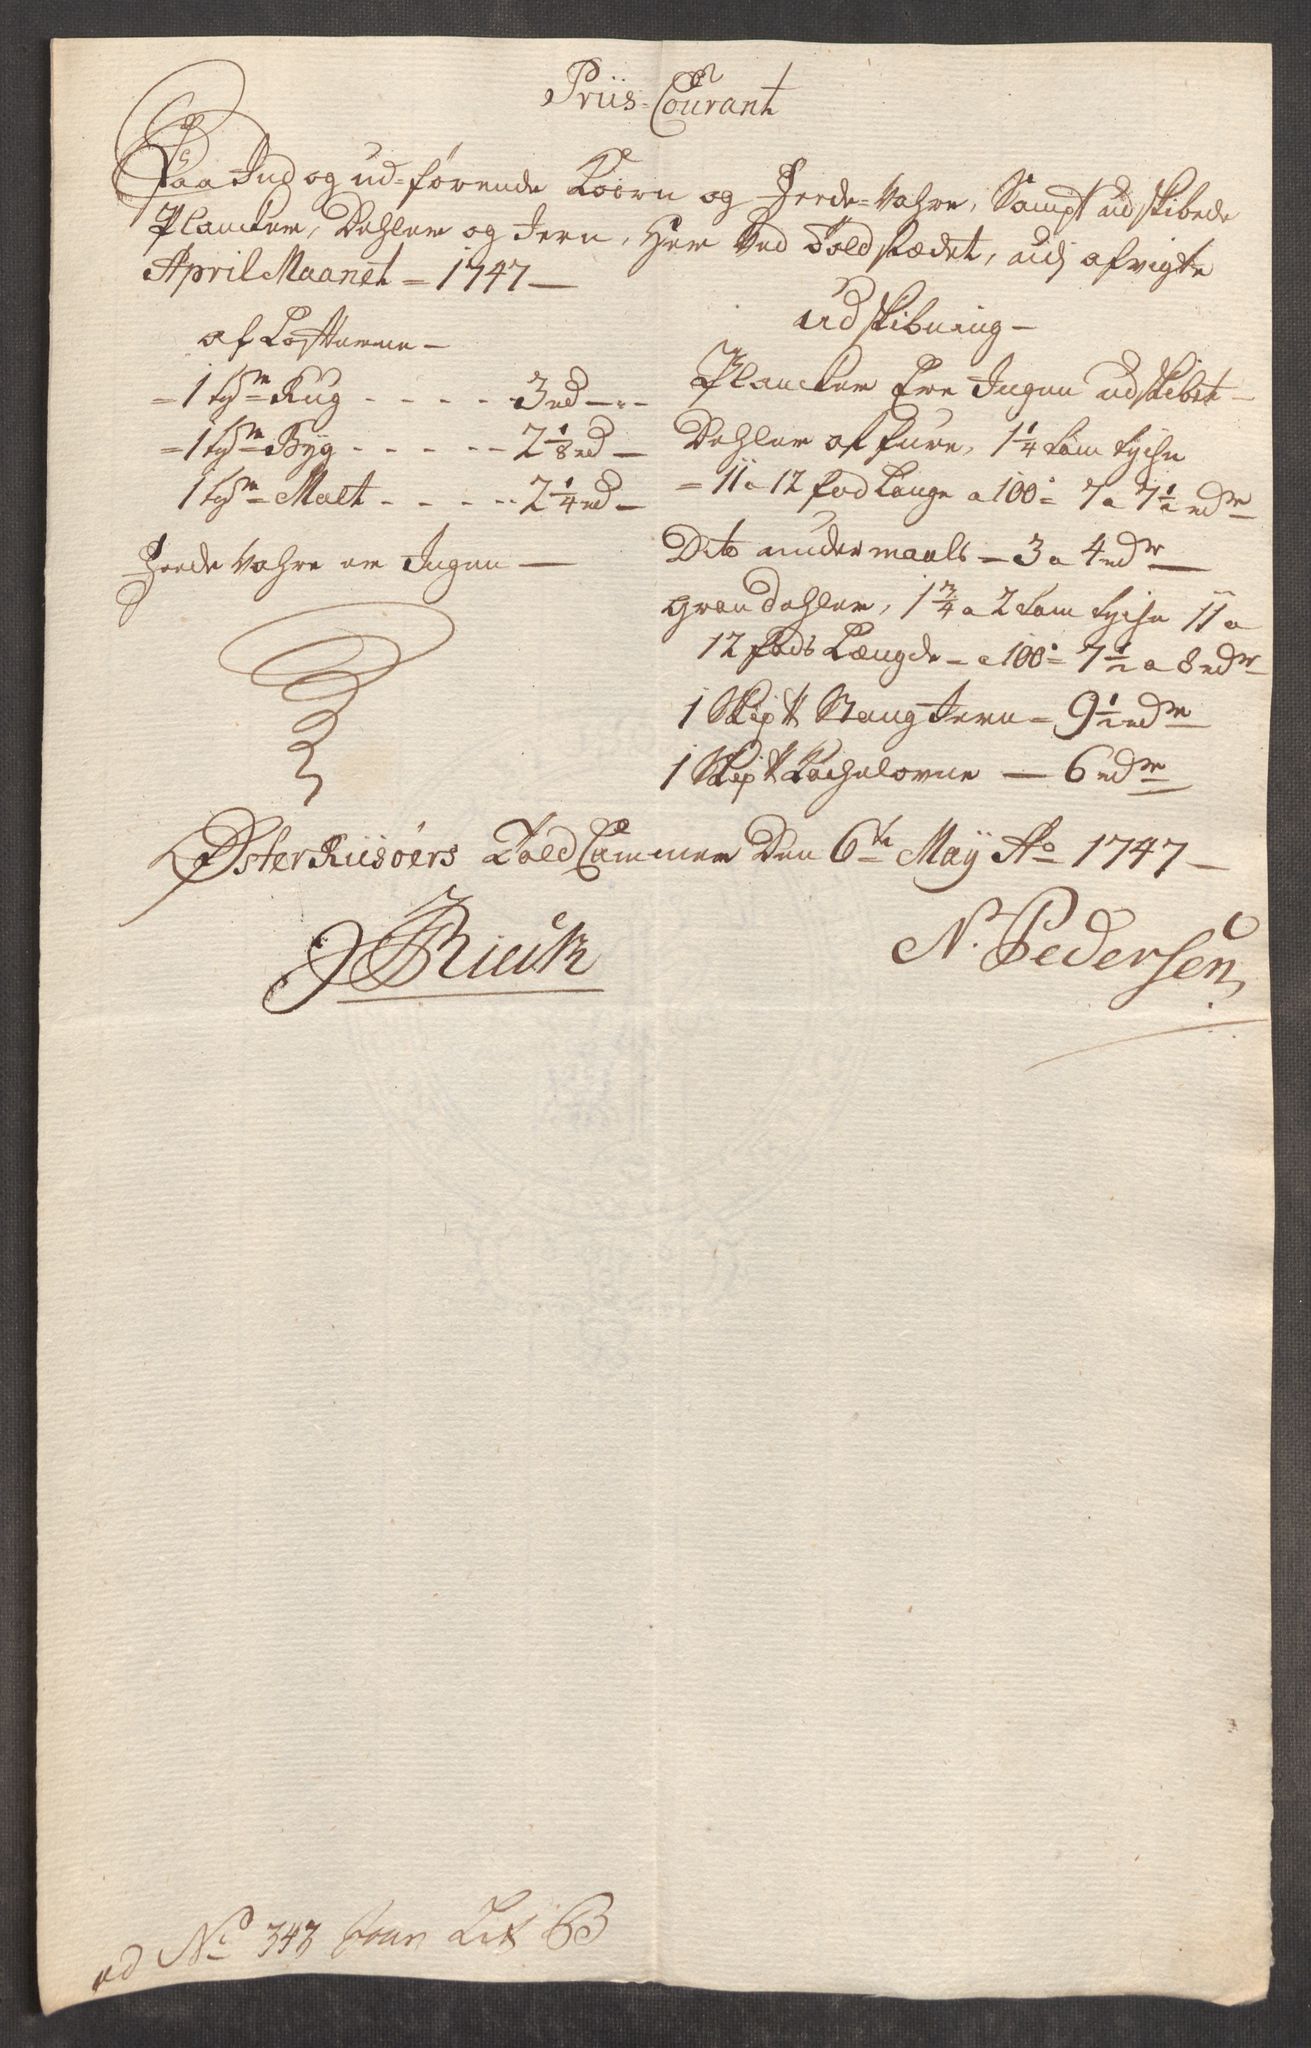 Priis-Courant
Paa Ind og ud-förende Koorn og Feede-Vahre, Sampt udskibede
Plancker, Dehler og Jern, Her Ved Toldstædet, udj afvigte
April Maanet = 1747 —
af Losterne —
= 1 tdr Rug - - - - - 3 rd —"—
= 1 tdr Byg - - - - - 2 1/8 rd —
1 tdr Malt - - - - - 2 1/4 rd —
Feede Vahre er Ingen —
udskibning —
Plancker Ere Ingen udskibet —
Dehler af furu, 1 1/4 tom tyche
= 11 a 12 fod Lange a 100: 7 a 7 1/2 rdr
Dito undermaals — 3 a 4 rdr
Gran dehler, 1 3/4 a 2 tom tyche 11 a
12 fods Længde — a 100: 7 1/2 a 8 rdr
1 Skip℔ Stang Jern = 9 1/2 rdr
1 Skip℔ Kachelovne — 6 rdr
Øster Riisöers Told Cammer Den 6te Maÿ Ao 1747 —
N. Pedersen
ad No 343 Lit B